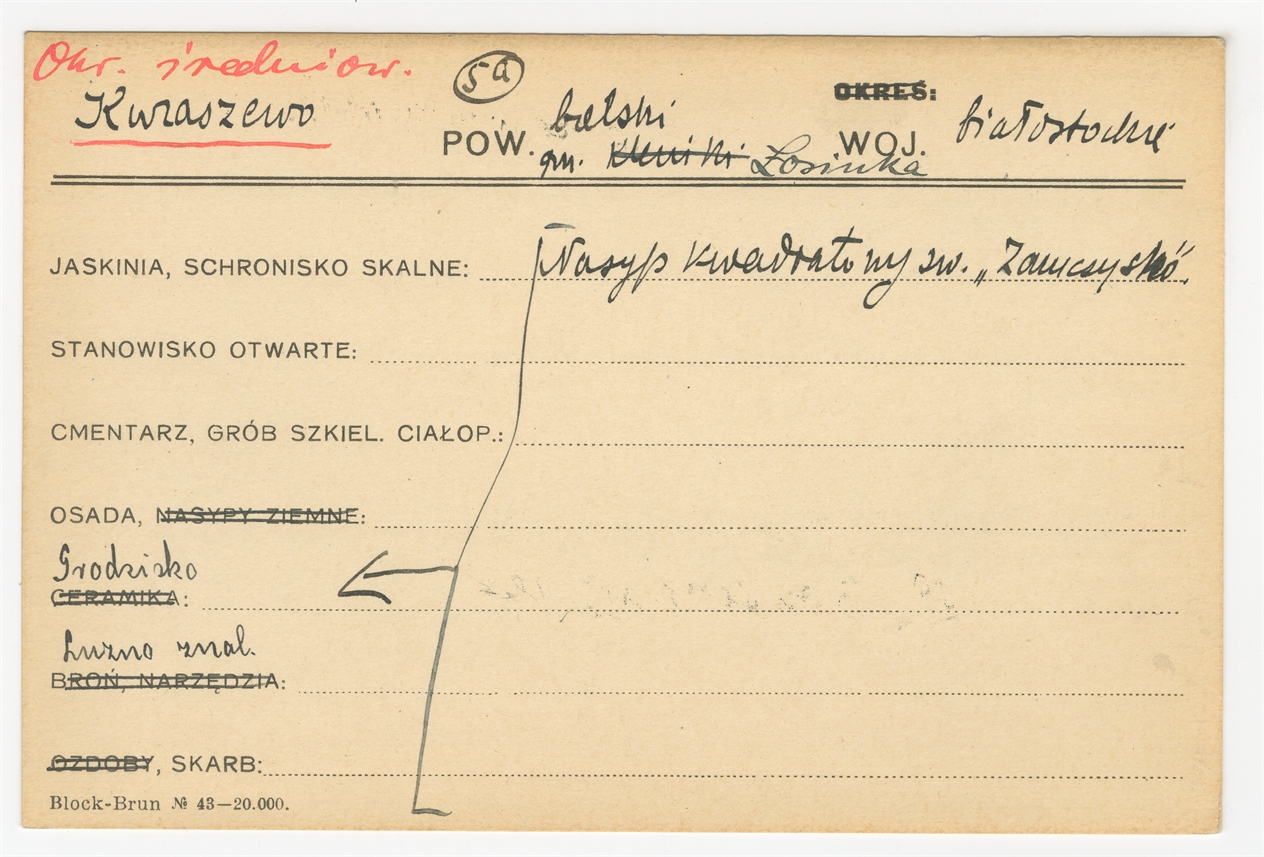 Okr. średniow.
Kuraszewo
5a
OKRES:
POW. bielski
WOJ. białostockie
gm. Kleniki Łosinka
JASKINIA, SCHRONISKO SKALNE: Nasyp kwadratowy zw. „Zamczysko"
STANOWISKO OTWARTE:
CMENTARZ, GRÓB SZKIEL. CIAŁOP.:
OSADA, NASYPY ZIEMNE:
Grodzisko
CERAMIKA:
Luzno znal.
BROŃ, NARZĘDZIA:
OZDOBY, SKARB:
Block-Brun № 43—20.000.